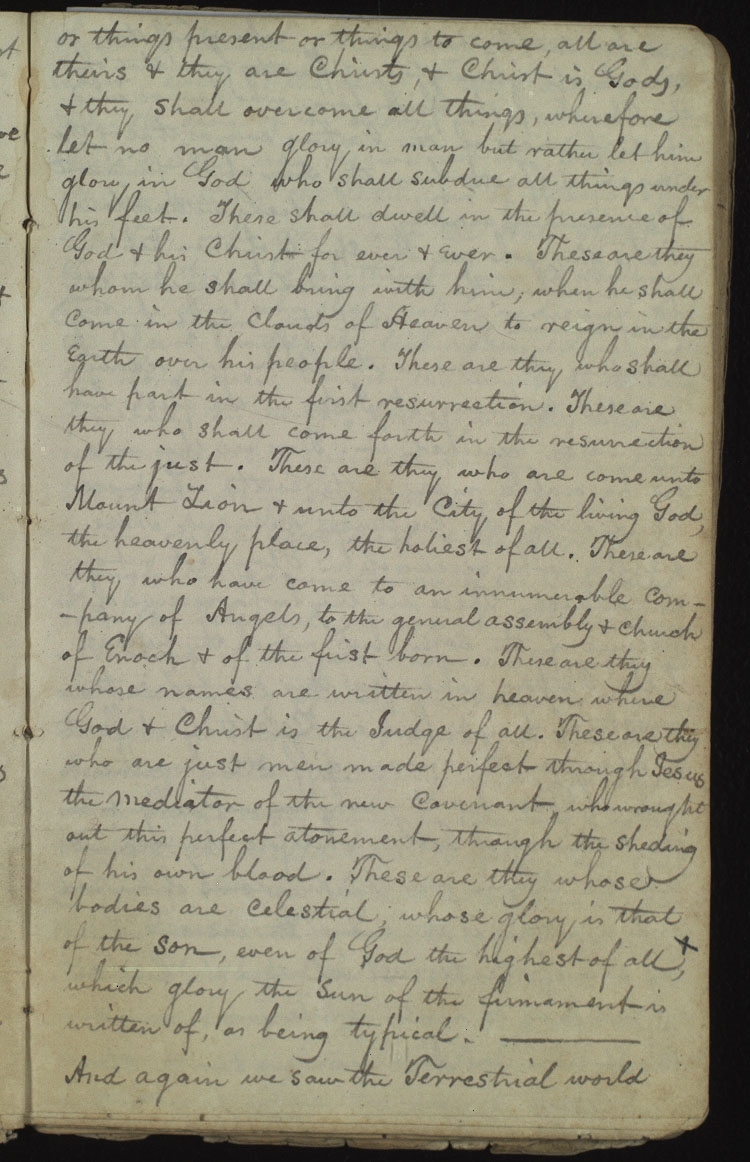 or things present or things to come, all are
theirs & they are Christs, & Christ is Gods,
& they shall overcome all things, wherefore
let no man glory in man but rather let him
glory in God who shall subdue all things under
his feet. These shall dwell in the presence of
God & his Christ for ever & ever. These are they
whom he shall bring with him, when he shall
come in the Clouds of Heaven to reign in the
Earth over his people. These are they who shall
have part in the first resurrection. These are
they who shall come forth in the resurrection
of the just. These are they who are come unto
Mount Zion & unto the City of the living God,
the heavenly place, the holiest of all. These are
they who have come to an innumerable com-
-pany of Angels, to the general assembly & church
of Enoch & of the first born. These are they
whose names are written in heaven where
God & Christ is the Judge of all. These are they
who are just men made perfect through Jesus
the mediator of the new Covenant, who wrought
out this perfect atonement, through the sheding
of his own blood. These are they whose
bodies are celestial, whose glory is that
of the son, even of God the highest of all,
which glory the Sun of the firmament is
written of, as being typical.
And again we saw the Terrestrial world